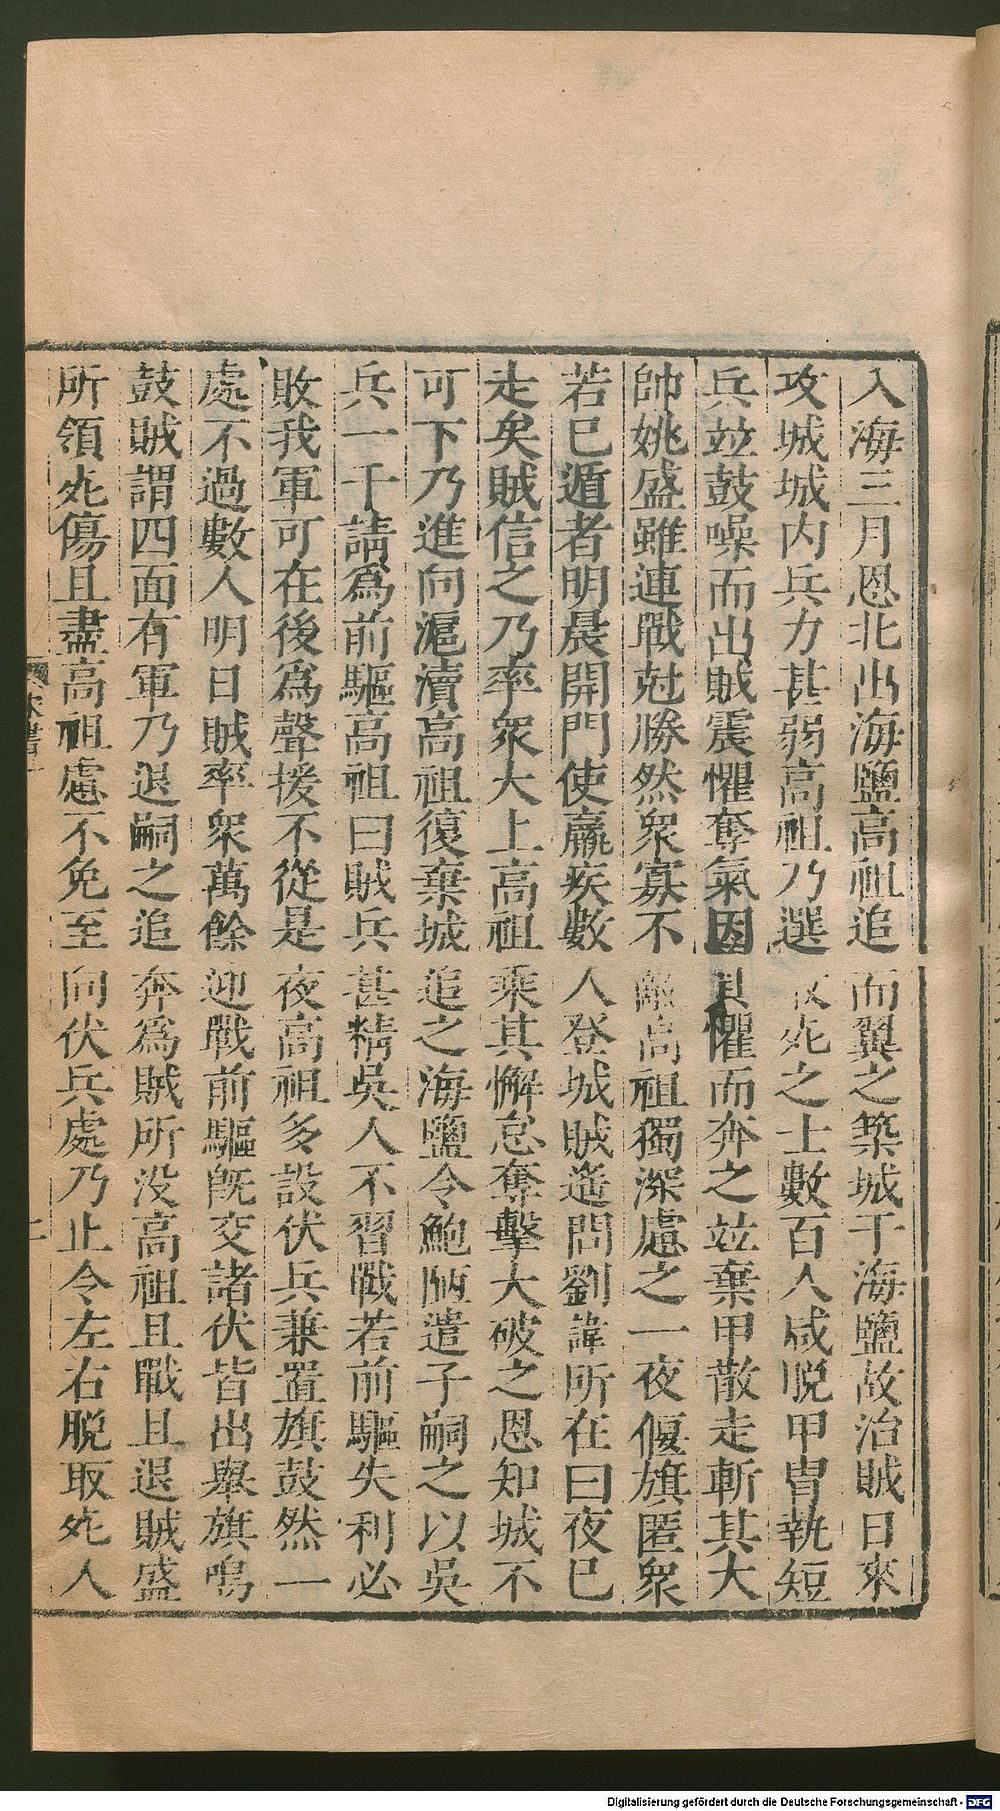 入海三月恩北出海鹽高祖追而翼之築城于海鹽故治賊日來
攻城城内兵力甚弱高祖乃選敢死之士數百人咸脱甲冑執短
兵竝鼓噪而出賊震懼奪氣因其懼而奔之竝棄甲散走斬其大
帥姚盛雖連戰尅勝然衆寡不敵高祖獨深慮之一夜偃旗匿衆
若已遁者明晨開門使羸疾數人登城賊遥問劉諱所在曰夜已
走矣賊信之乃率衆大上高祖乘其懈怠奮擊大破之恩知城不
可下乃進向滬瀆高祖復棄城追之海鹽令鮑陋遣子嗣之以吳
兵一千請爲前驅高祖曰賊兵甚精吳人不習戰若前驅失利必
敗我軍可在後爲聲援不從是夜高祖多設伏兵兼置旗鼓然一
處不過數人明日賊率衆萬餘迎戰前驅旣交諸伏皆出舉旗鳴
鼓賊謂四面有軍乃退嗣之追奔爲賊所没高祖且戰且退賊盛
所領死傷且盡高祖慮不免至向伏兵處乃止令左右脱取死人
Digitalisierung gefördert durch die Deutsche Forschungsgemeinschaft - DFG